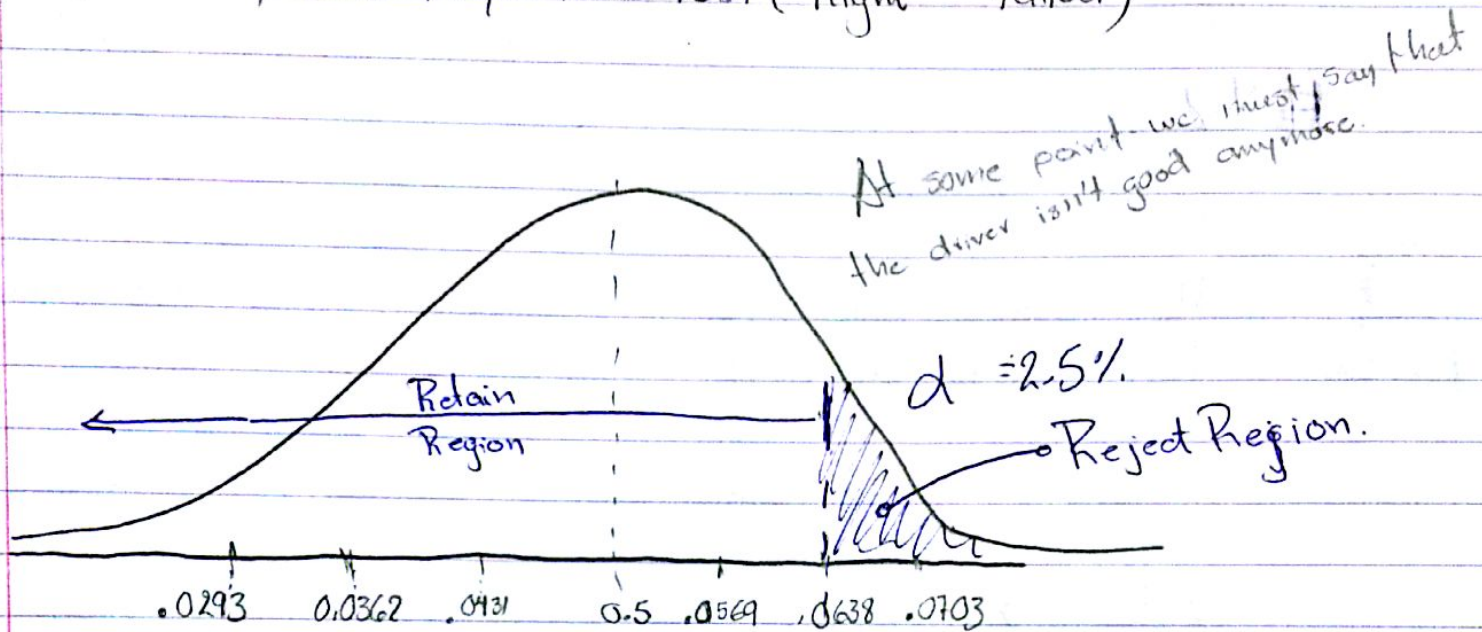 Test (Right Tailed)
At some point we must say that
the driver isn't good anymore.
α = 2.5%.
Retain
Region
Reject Region.
.0293 0.0362 .0431 0.5 .0569 .0638 .0703